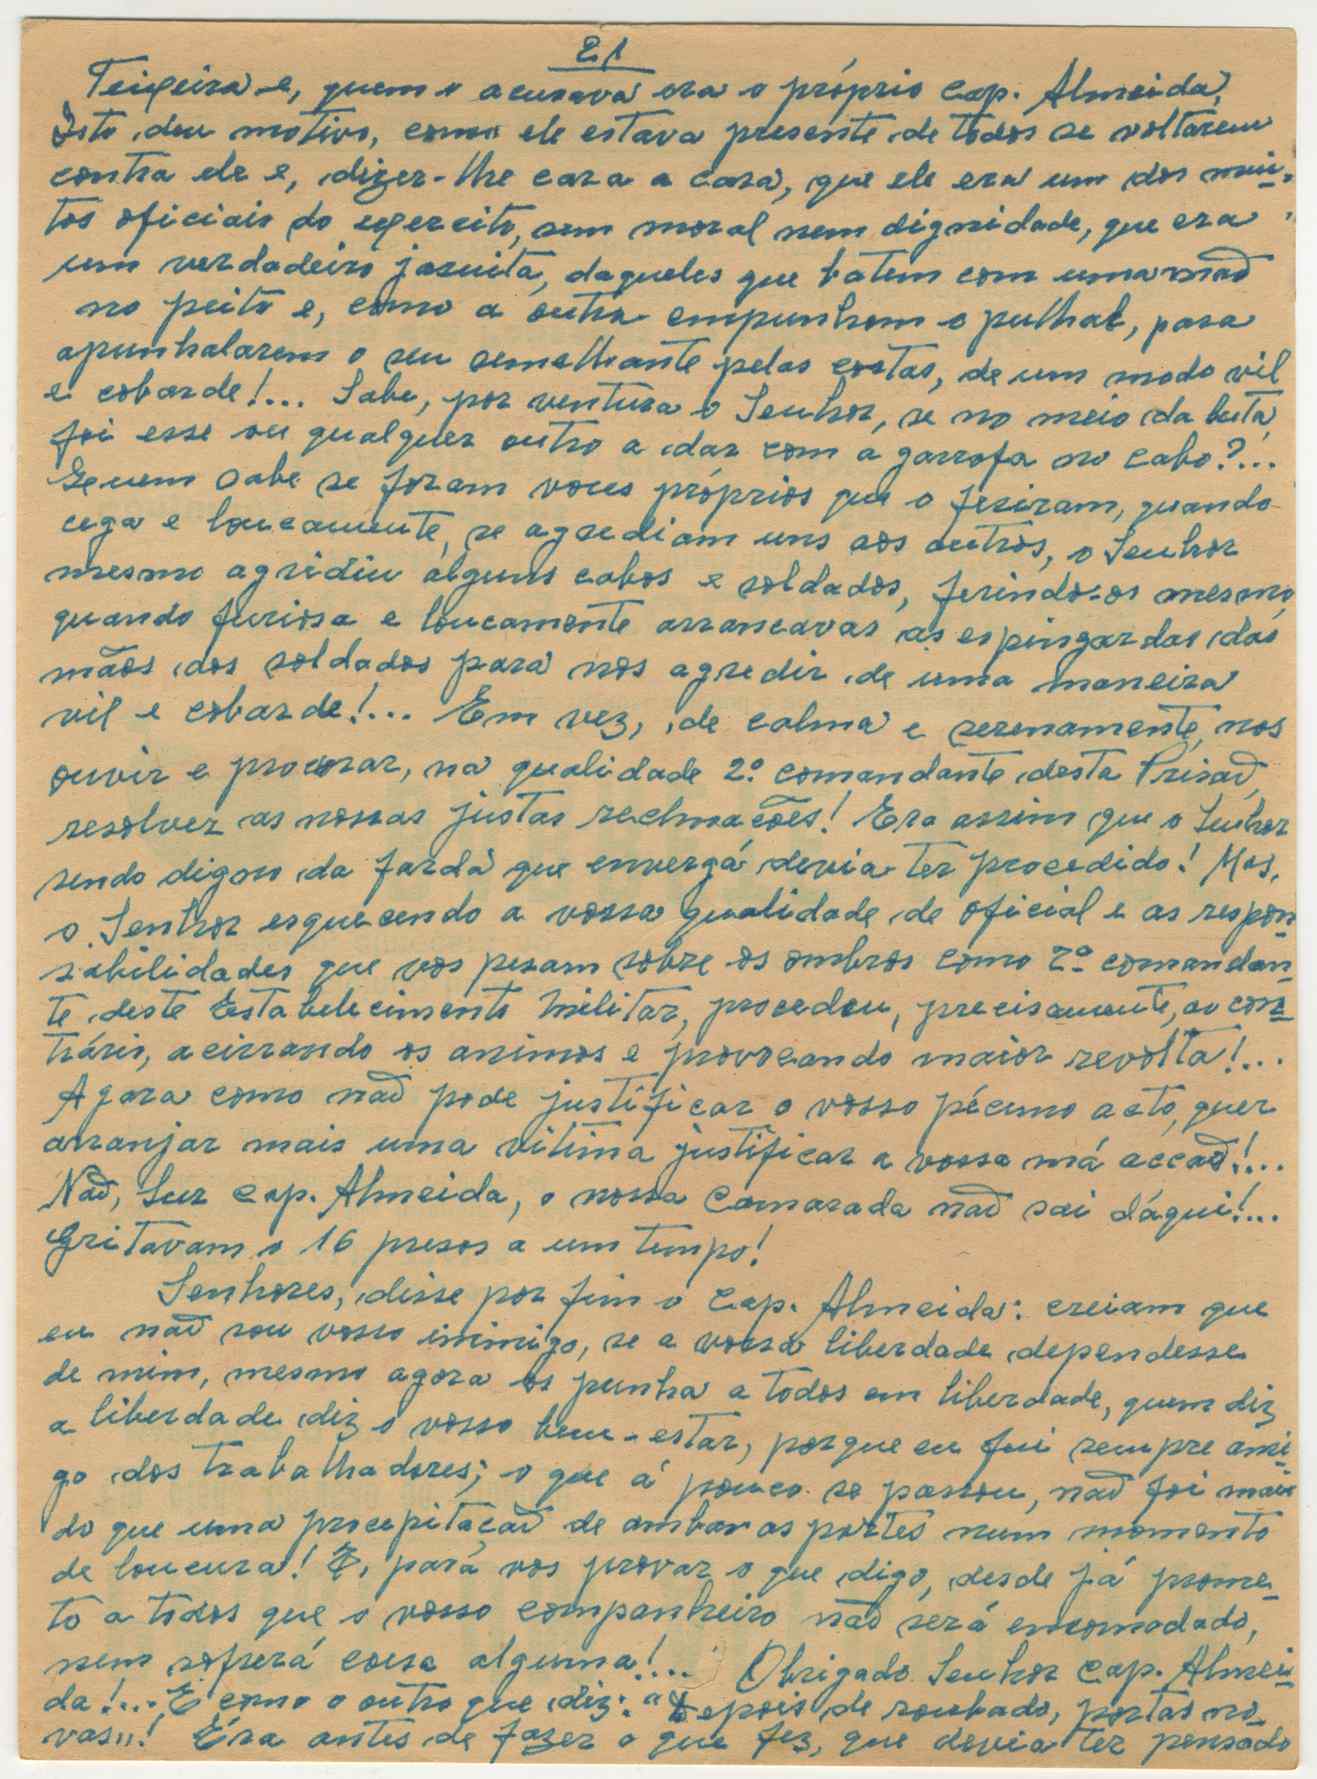 21
Teixeira e, quem o acusava era o próprio cap. Almeida,
Isto deu motivo, como ele estava presente de todos se voltarem
contra ele e, dizer-lhe cara a cara, que ele era um dos mui-
tos oficiais do exercito, sem moral nem dignidade, que era
um verdadeiro jasuita, daqueles que batem com uma mão
no peito e, como a outra empunham o pulhal, para
apunhalarem o seu semelhante pelas costas, de um modo vil
e cobarde!... Sabe, por ventura o Senhor, se no meio da luta
foi esse ou qualquer outro a dar com a garrafa no cabo?...
Quem sabe se foram voces próprios que o fesiram, quando
cega e loucamente, se agrediam uns aos outros, o Senhor
mesmo agridiu alguns cabos e soldados, ferindo-os mesmo,
quando furiosa e loucamente arrancavas as espingardas das
mãos dos soldados para nos agredir de uma maneira
vil e cobarde!... Em vez, de calma e serenamente, nos
ouvir e procurar, na qualidade 2º comandante desta Prisão,
resolver as nossas justas reclmacões! Era assim que o Senhor
sendo digno da farda que envergá devia ter procedido! Mas,
o Senhor esquecendo a vossa qualidade de oficial e as respon-
sabilidades que vos pesam sobre os ombros como 2º comandan-
te deste Estabelecimento Militar, procedeu, precisamente, ao con-
trário, acirrando os animos e provocando maior revolta!...
Agora como não pode justificar o vosso pécimo acto, quer
arranjar mais uma vitima justificar a vossa má acção!...
Não, Snr cap. Almeida, o nossa camarada não sai dáqui!...
Gritavam o 16 presos a um tempo!
Senhores, disse por fim o Cap. Almeida: creiam que
eu não sou vosso inimigo, se a vossa liberdade dependesse
de mim, mesmo agora os punha a todos em liberdade, quem diz
a liberdade diz o vosso bem-estar, porque eu fui sempre ami-
go dos trabalhadores; o que á pouco se passou, não foi mais
do que uma precipitação de ambas as partes num momento
de loucura! E, pará vos provar o que digo, desde já prome-
to a todos que o vosso companheiro não será encomodado,
nem sofrerá coisa alguma!... Obrigado Senhor cap. Almei-
da!... E como o outro que diz: "Depois de roubado, portas no-
vas"! Éra antes de fazer o que fez, que devia ter pensado